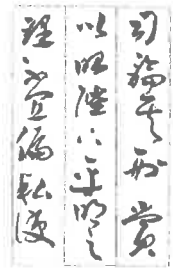 司論其刑賞
以昭陛下平明之
理不宜偏私使